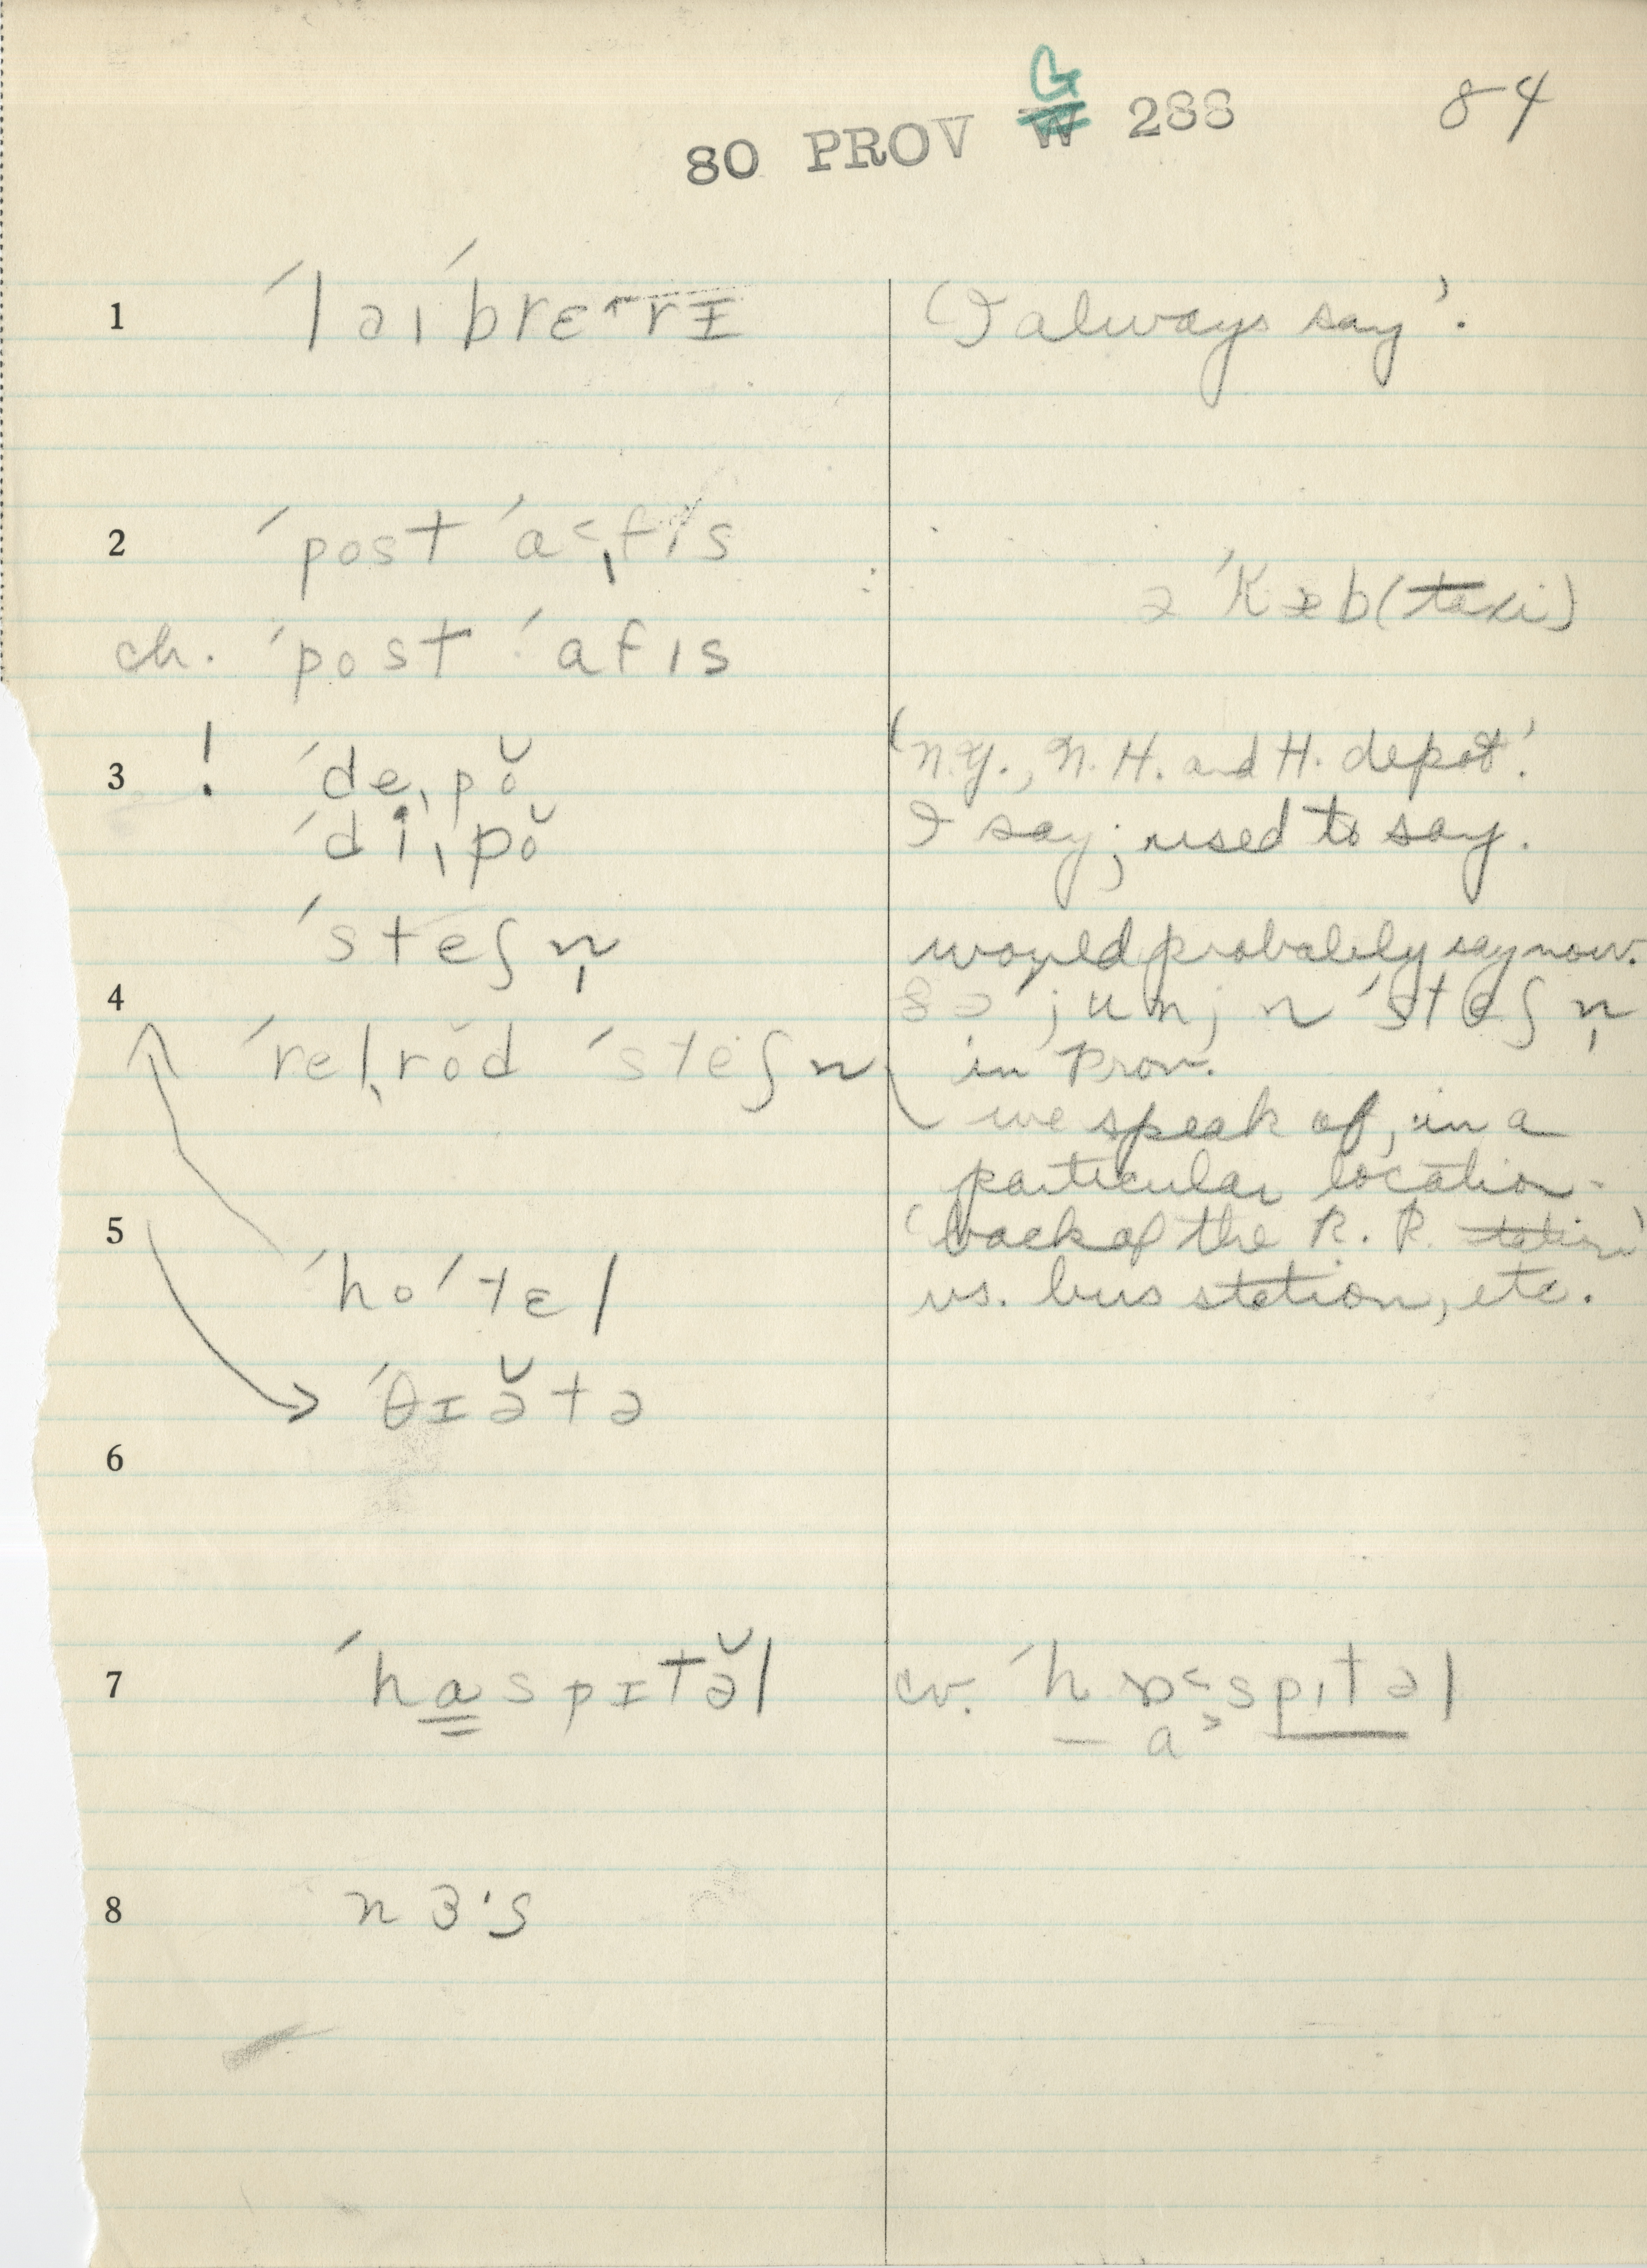 80 PROV G W 288 84
1 ˈlaɪˈbrɛ˄rɪ 'I always say'.
2 ˈpost ˈɑ˂ˌfɪs
ə ˈkæb (taxi)
ch. ˈpost ˈɑfɪs
3 ! ˈdeˌpŏ 'N.Y., N. H. and H. depot'.
ˈdiˌpŏ I say; used to say.
ˈsteʃn̩ would probably say now.
4 ðə ˈjunjn ˈsteʃn̩
ˈrelˌrŏd ˈsteʃn in Prov.
we speak of, in a
particular location -
5 'back of the R. R. station'
ˈhoˈtɛl vs. bus station, etc.
ˈθɪə̆tə
6
7 ˈhɑspɪtə̆l cv. ˈhɒ˂spɪtəl
— ɑ˃
8 nɜˑs